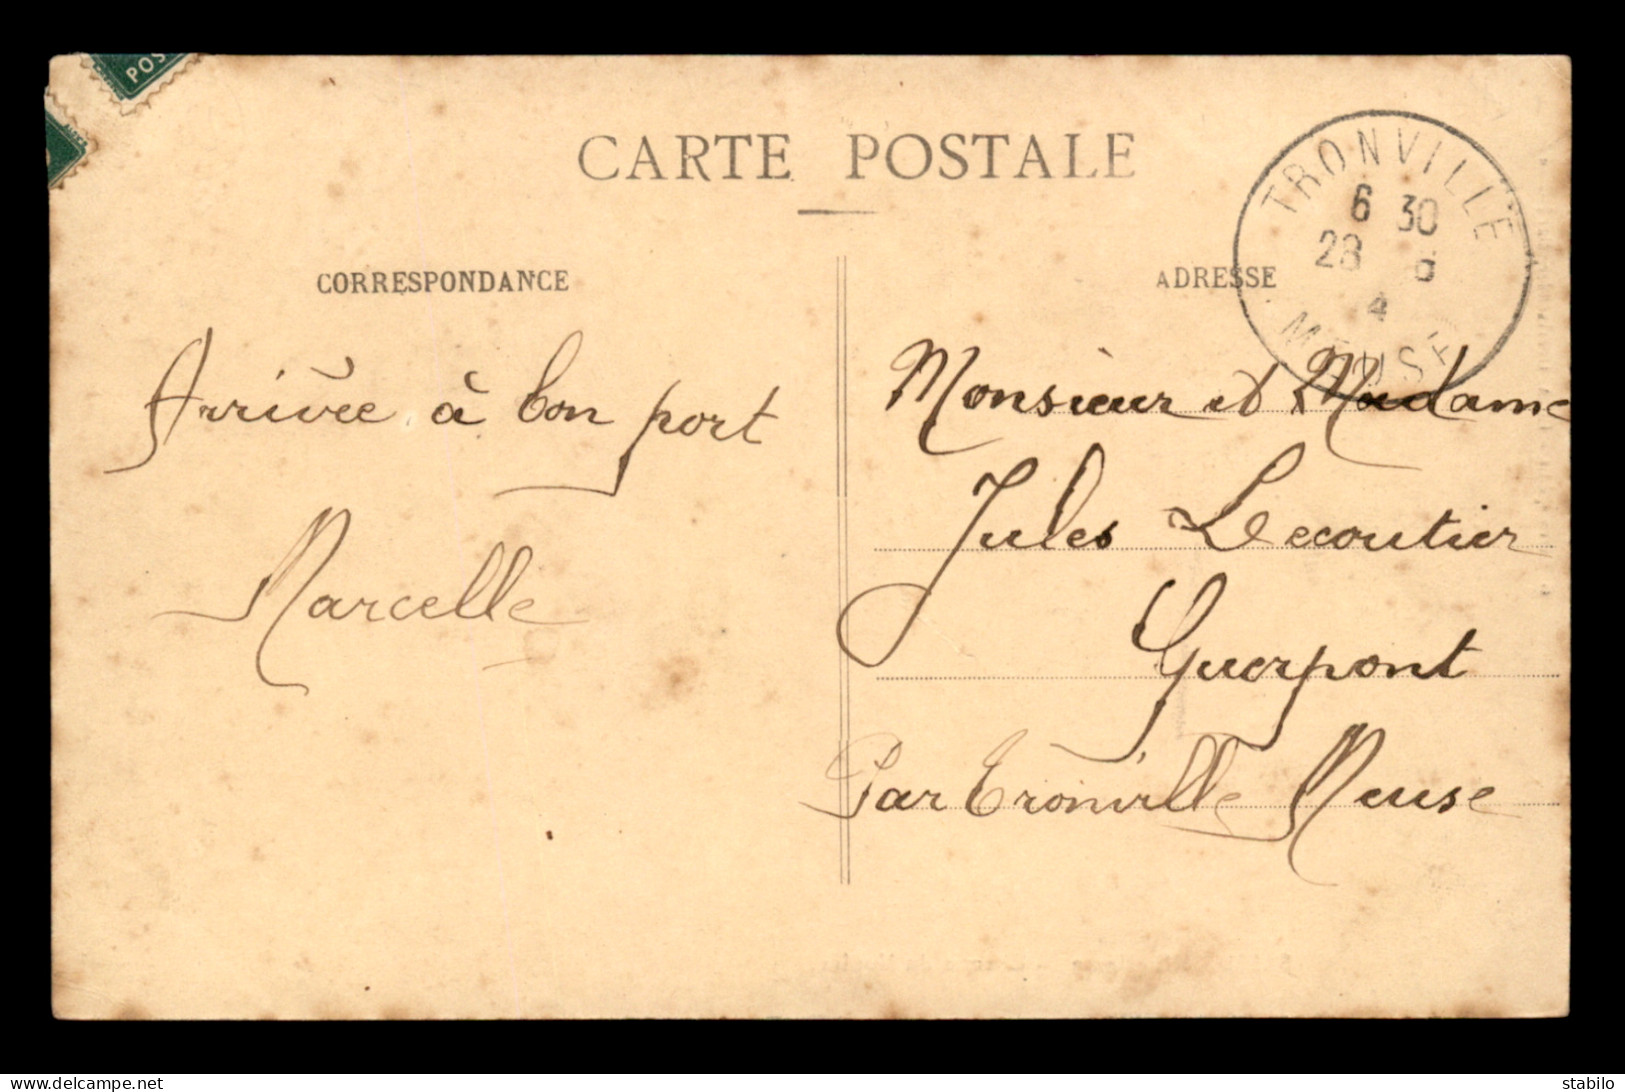 POS
CARTE POSTALE
TRONVILLE
6 30
28 6
4
MEUSE
CORRESPONDANCE
ADRESSE
Arrivée à bon port
Marcelle
Monsieur et Madame
Jules Lecoutier
Guerpont
Par Tronville Meuse
delcampe.net
stabilo